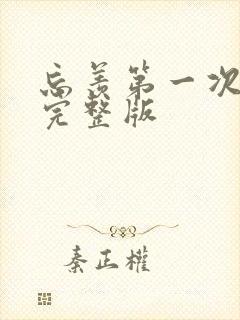 忘羡第一次
完整版
秦正權